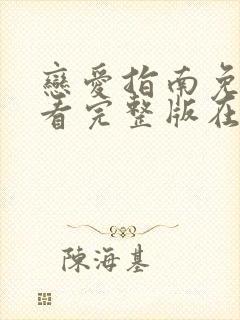 戀愛指南免
看完整版在
陳海基